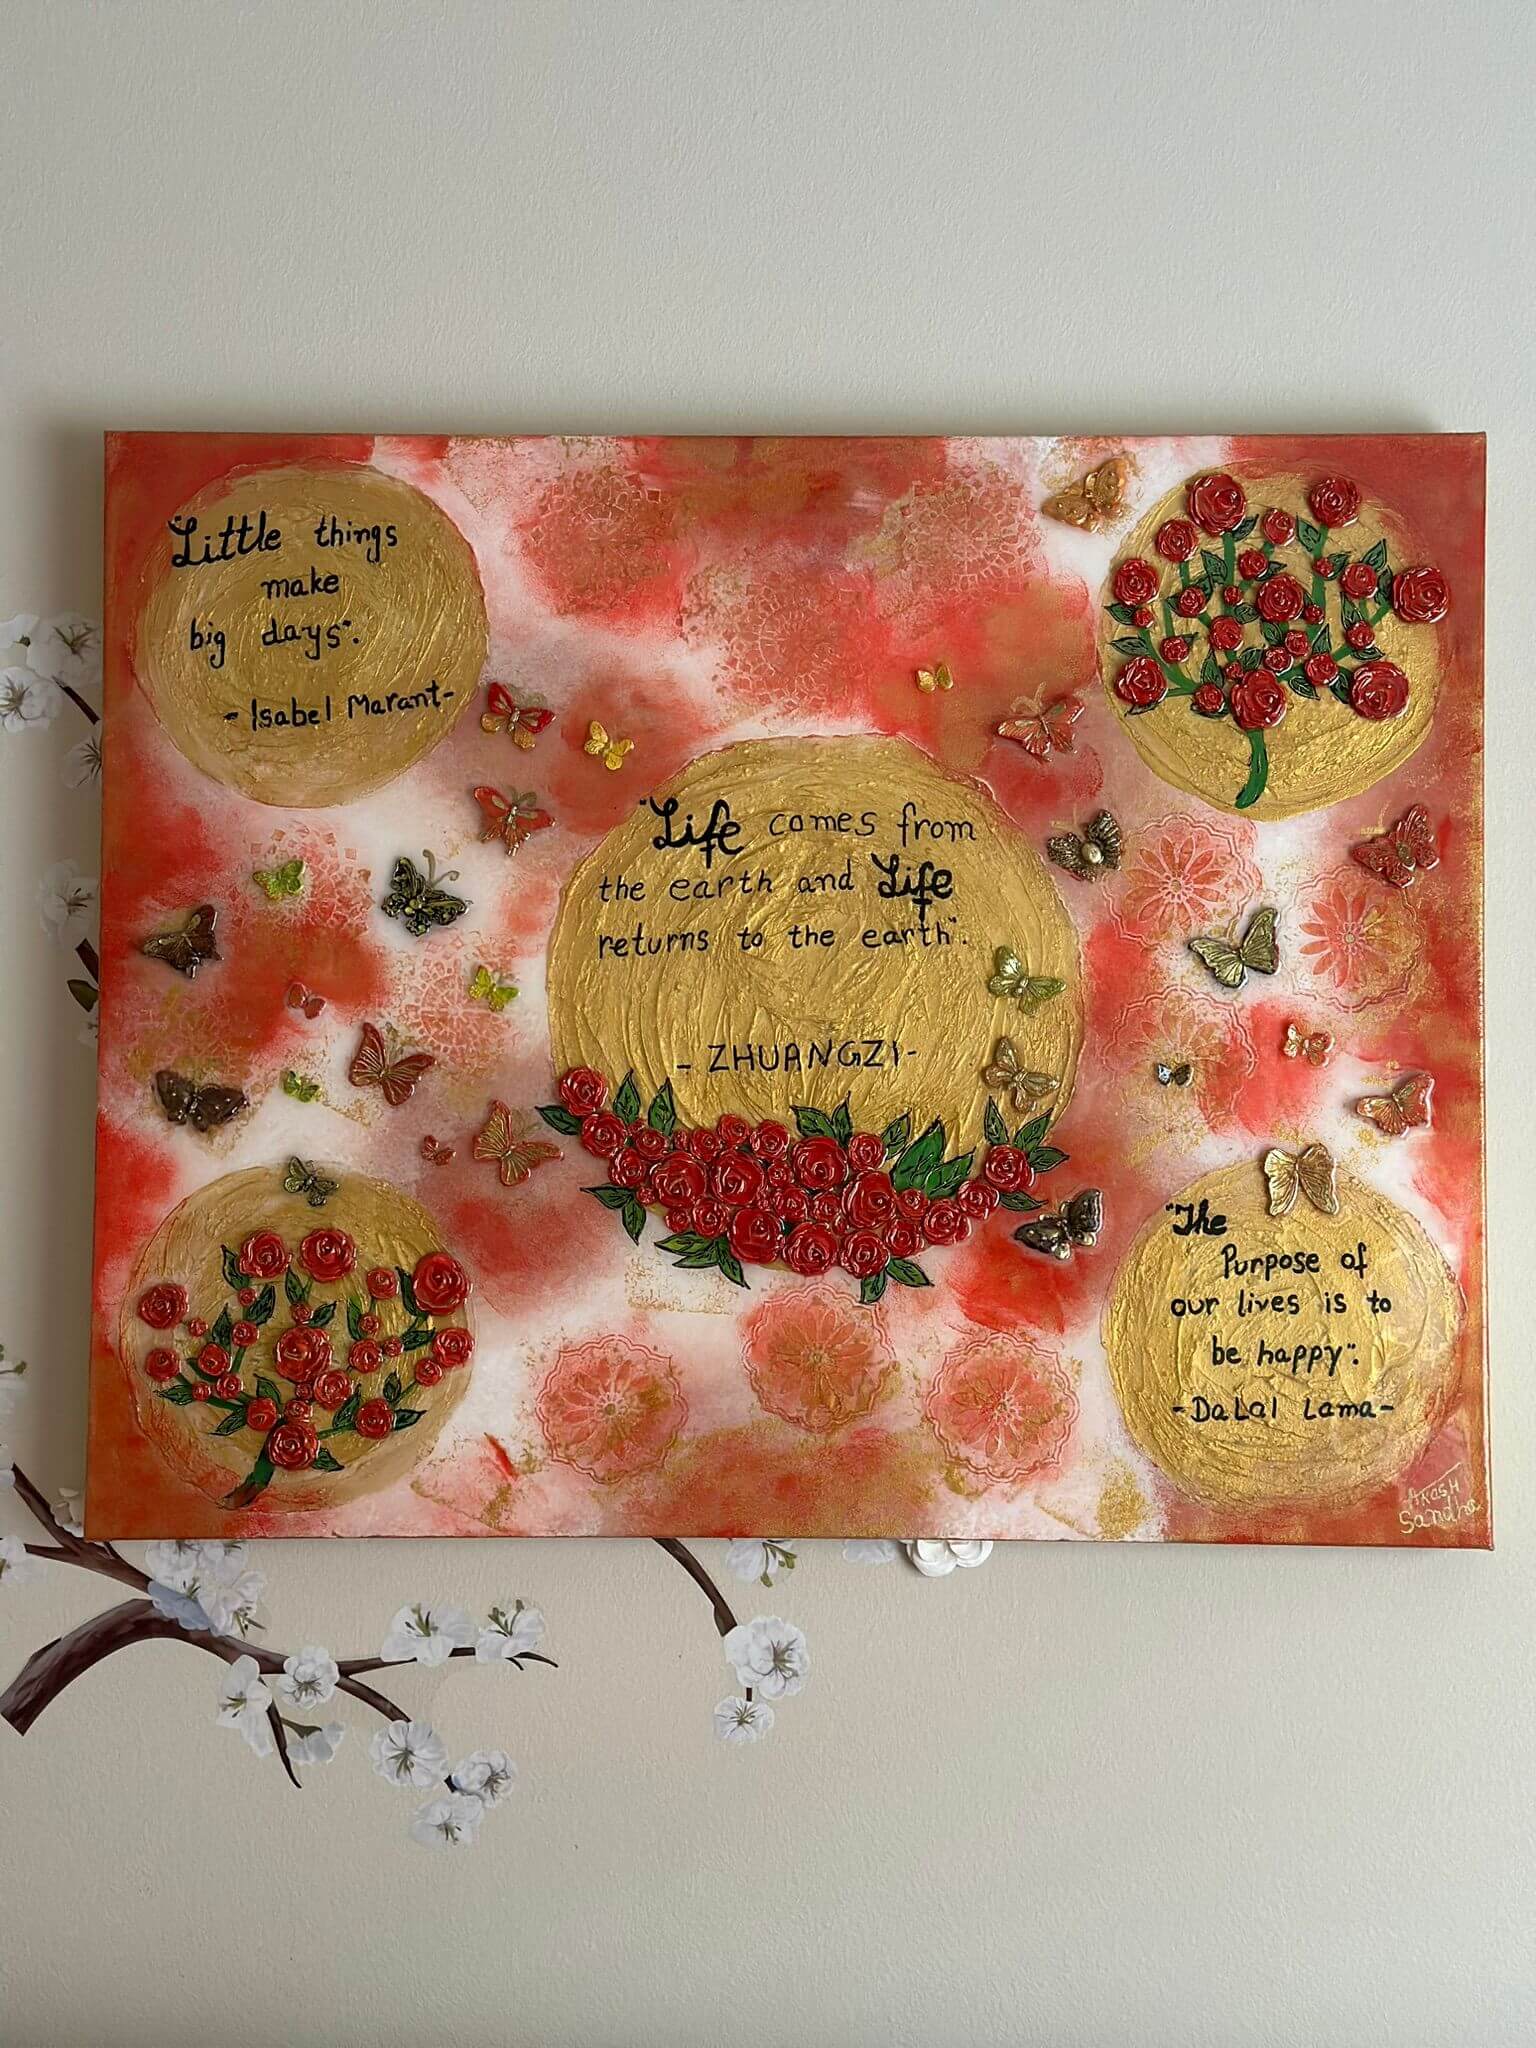 "Little things
make
big days".
- Isabel Marant-
"Life comes from
the earth and Life
returns to the earth".
- ZHUANGZI -
"The
Purpose of
our lives is to
be happy".
- DaLaI Lama -
AKASH
Sandha